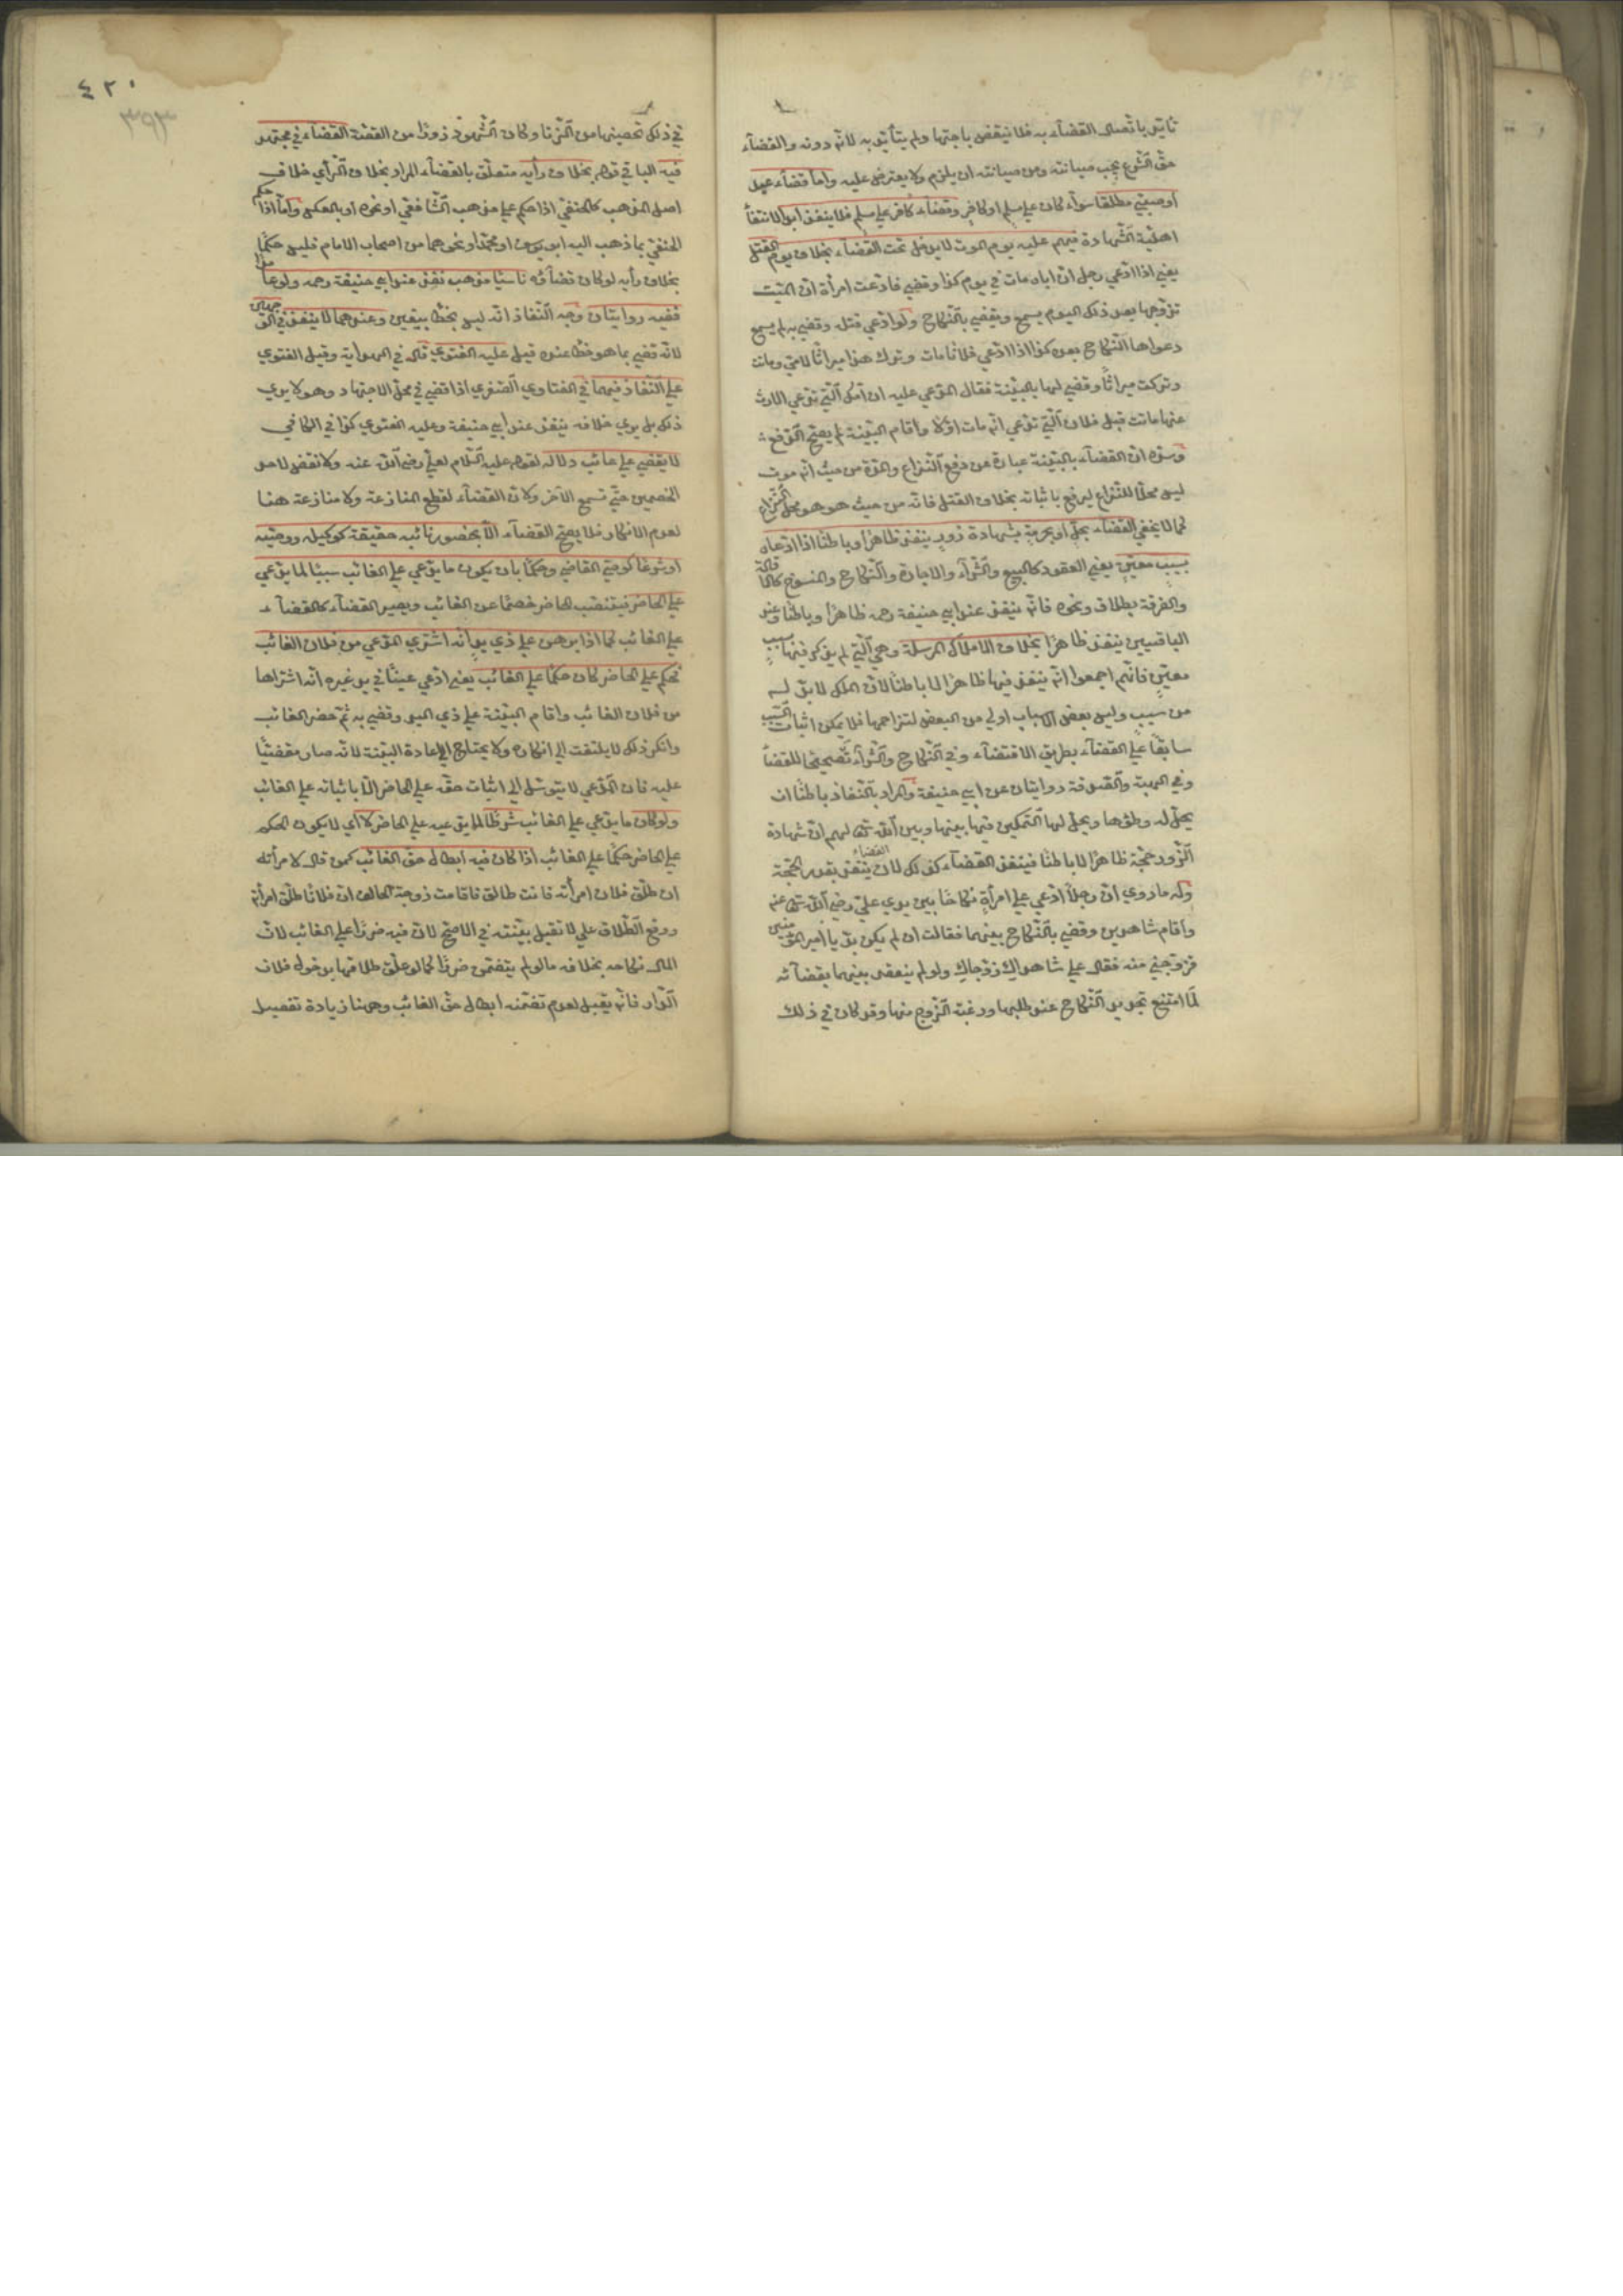 تأيّد باتّصال القضاء به فلا ينقض باجتهاد لم يتأيّد به لانّه دونه والقضاء
حقّ الشّرع يجب صيانته ومن صيانته ان يلزم ولا يعترض عليه وامّا قضاء عبد
او صبيّ مطلقا سواء كان على مسلم او كافر وقضاء كافر على مسلم فلا ينفذ ابدا لانتفاء
اهليّة الشّهادة فيهم عليه يوم الموت لا يدخل تحت القضاء بخلاف يوم القتل
يعني اذا ادّعي رجل انّ اباه مات في يوم كذا وقضي فادّعت امرأة انّ الميّت
تزوّجها بعد ذلك اليوم يسمع ويقضي بالنّكاح ولو ادّعي قتله وقضي به لم يسمع
دعواها النّكاح بعده كذا اذا ادّعي فلانا مات وترك هذا ميراثا لامّي وماتت
وتركت ميراثا وقضي لها بالبيّنة فقال المدّعي عليه ان امّك الّتي تدّعي الارث
عنها ماتت قبل فلان الّتي تدّعي انّه مات اوّلا واقام البيّنة لم يصحّ الدّفع
وسرّه انّ القضاء بالبيّنة عبارة عن دفع النّزاع والموت من حيث انّه موت
ليس محلّا للنّزاع ليرفع باثباته بخلاف القتل فانّه من حيث هو هو محلّ النّزاع
كما لا يخفي القضاء بحلّ او بحرمة بشهادة زور ينفذ ظاهرا وباطنا اذا ادّعاه
بسبب معيّن يعني العقود كالبيع والشّراء والاجارة والنّكاح والفسوخ كالاقالة
والفرقة بطلاق ونحوه فانّه ينفذ عند ابي حنيفة رحمه ظاهرا وباطنا وعند
الباقيين ينفذ ظاهرا بخلاف الاملاك المرسلة وهي الّتي لم يذكر فيها سبب
معيّن فانّهم اجمعوا انّه ينفذ فيها ظاهرا لا باطنا لانّ الملك لا بدّ له
من سبب وليس بعض الاسباب اولي من البعض لتزاحمها فلا يمكن اثبات السّبب
سابقا علي القضاء بطريق الاقتضاء وفي النّكاح والشّراء تصحيحا للقضاء
وفي الهبة والصّدقة روايتان عن ابي حنيفة والمراد بالنّفاذ باطنا ان
يحلّ له وطؤها ويحلّ لها التّمكين فيما بينها وبين اللّه تعالى لهم انّ شهادة
الزّور حجّة ظاهرا لا باطنا فينفذ القضاء كذلك لانّ القضاء ينفذ بقدر الحجّة
وله ما روي انّ رجلا ادّعي علي امرأة نكاحا بين يدي علي رضي اللّه تعالى عنه
واقام شاهدين وقضي بالنّكاح بينهما فقالت ان لم يكن بدّ يا امير المؤمنين
فزوّجني منه فقال علي شاهداك زوّجاك ولو لم ينعقد بينهما بقضائه
لما امتنع تجديد النّكاح عند طلبها ورغبة الزّوج فيها وقد كان في ذلك
٤٢٠
٣٩٣
في ذلك تحصينها من الزّنا وكان الشّهود زورا من القصّة القضاء في مجتهد
فيه الباقي قوله بخلاف رأيه متعلّق بالقضاء المراد بخلاف الرّأي خلاف
اصل المذهب كالحنفي اذا حكم علي مذهب الشّافعي او نحوه او بالعكس وامّا اذا حكم
الحنفيّ بما ذهب اليه ابو يوسف او محمّد او نحوهما من اصحاب الامام فليس حكما
بخلاف رأيه لو كان قضاؤه ناسيا مذهبه نفذ عند ابي حنيفة رحمه ولو عامدا
ففيه روايتان وجه النّفاذ انّه ليس بخطأ بيقين وعندهما لا ينفذ في الوجهين
لانّه قضي بما هو خطأ عنده قيل عليه الفتوي قاله في الهداية وقيل الفتوي
علي النّفاذ فيهما في الفتاوي الصّغري اذا قضي في محلّ الاجتهاد وهو لا يري
ذلك بل يري خلافه ينفذ عند ابي حنيفة وعليه الفتوي كذا في الكافي
لا يقضي علي غائب ولا له لقوله عليه السّلام لعلي رضي اللّه عنه ولا تقض لاحد
الخصمين حتّي تسمع الآخر ولانّ القضاء لقطع المنازعة ولا منازعة هنا
لعدم الانكار فلا يصحّ القضاء الّا بحضور نائبه حقيقة كوكيله ووصيّه
او شرعا كوصيّ القاضي وحكما بان يكون ما يدّعي علي الغائب سببا لما يدّعي
علي الحاضر فينتصب الحاضر خصما عن الغائب ويصير القضاء كالقضاء
علي الغائب كما اذا برهن علي ذي يد انّه اشتري المدّعي من فلان الغائب
فحكم علي الحاضر كان حكما علي الغائب يعني ادّعي عينا في يد غيره انّه اشتراها
من فلان الغائب واقام البيّنة علي ذي اليد وقضي به ثمّ حضر الغائب
وانكر ذلك لا يلتفت الي انكاره ولا يحتاج الي اعادة البيّنة لانّه صار مقضيّا
عليه فانّ المدّعي لا يتوسّل الي اثبات حقّه علي الحاضر الّا باثباته علي الغائب
ولو كان ما يدّعي علي الغائب شرطا لما يدّعيه علي الحاضر لا اي لا يكون الحكم
علي الحاضر حكما علي الغائب اذا كان فيه ابطال حقّ الغائب كمن قال لامرأته
ان طلّق فلان امرأته فانت طالق فاقامت زوجة الحالف انّ فلانا طلّق امرأته
ووقع الطّلاق علي لا تقبل بيّنته في الاصحّ لانّ فيه ضررا علي الغائب لانّ
المال نكاحه بخلافه ما لو لم يتضمّن ضررا كما لو علّق طلاقها بدخول فلان
الدّار فانّه يقبل لعدم تضمّنه ابطال حقّ الغائب وههنا زيادة تفصيل